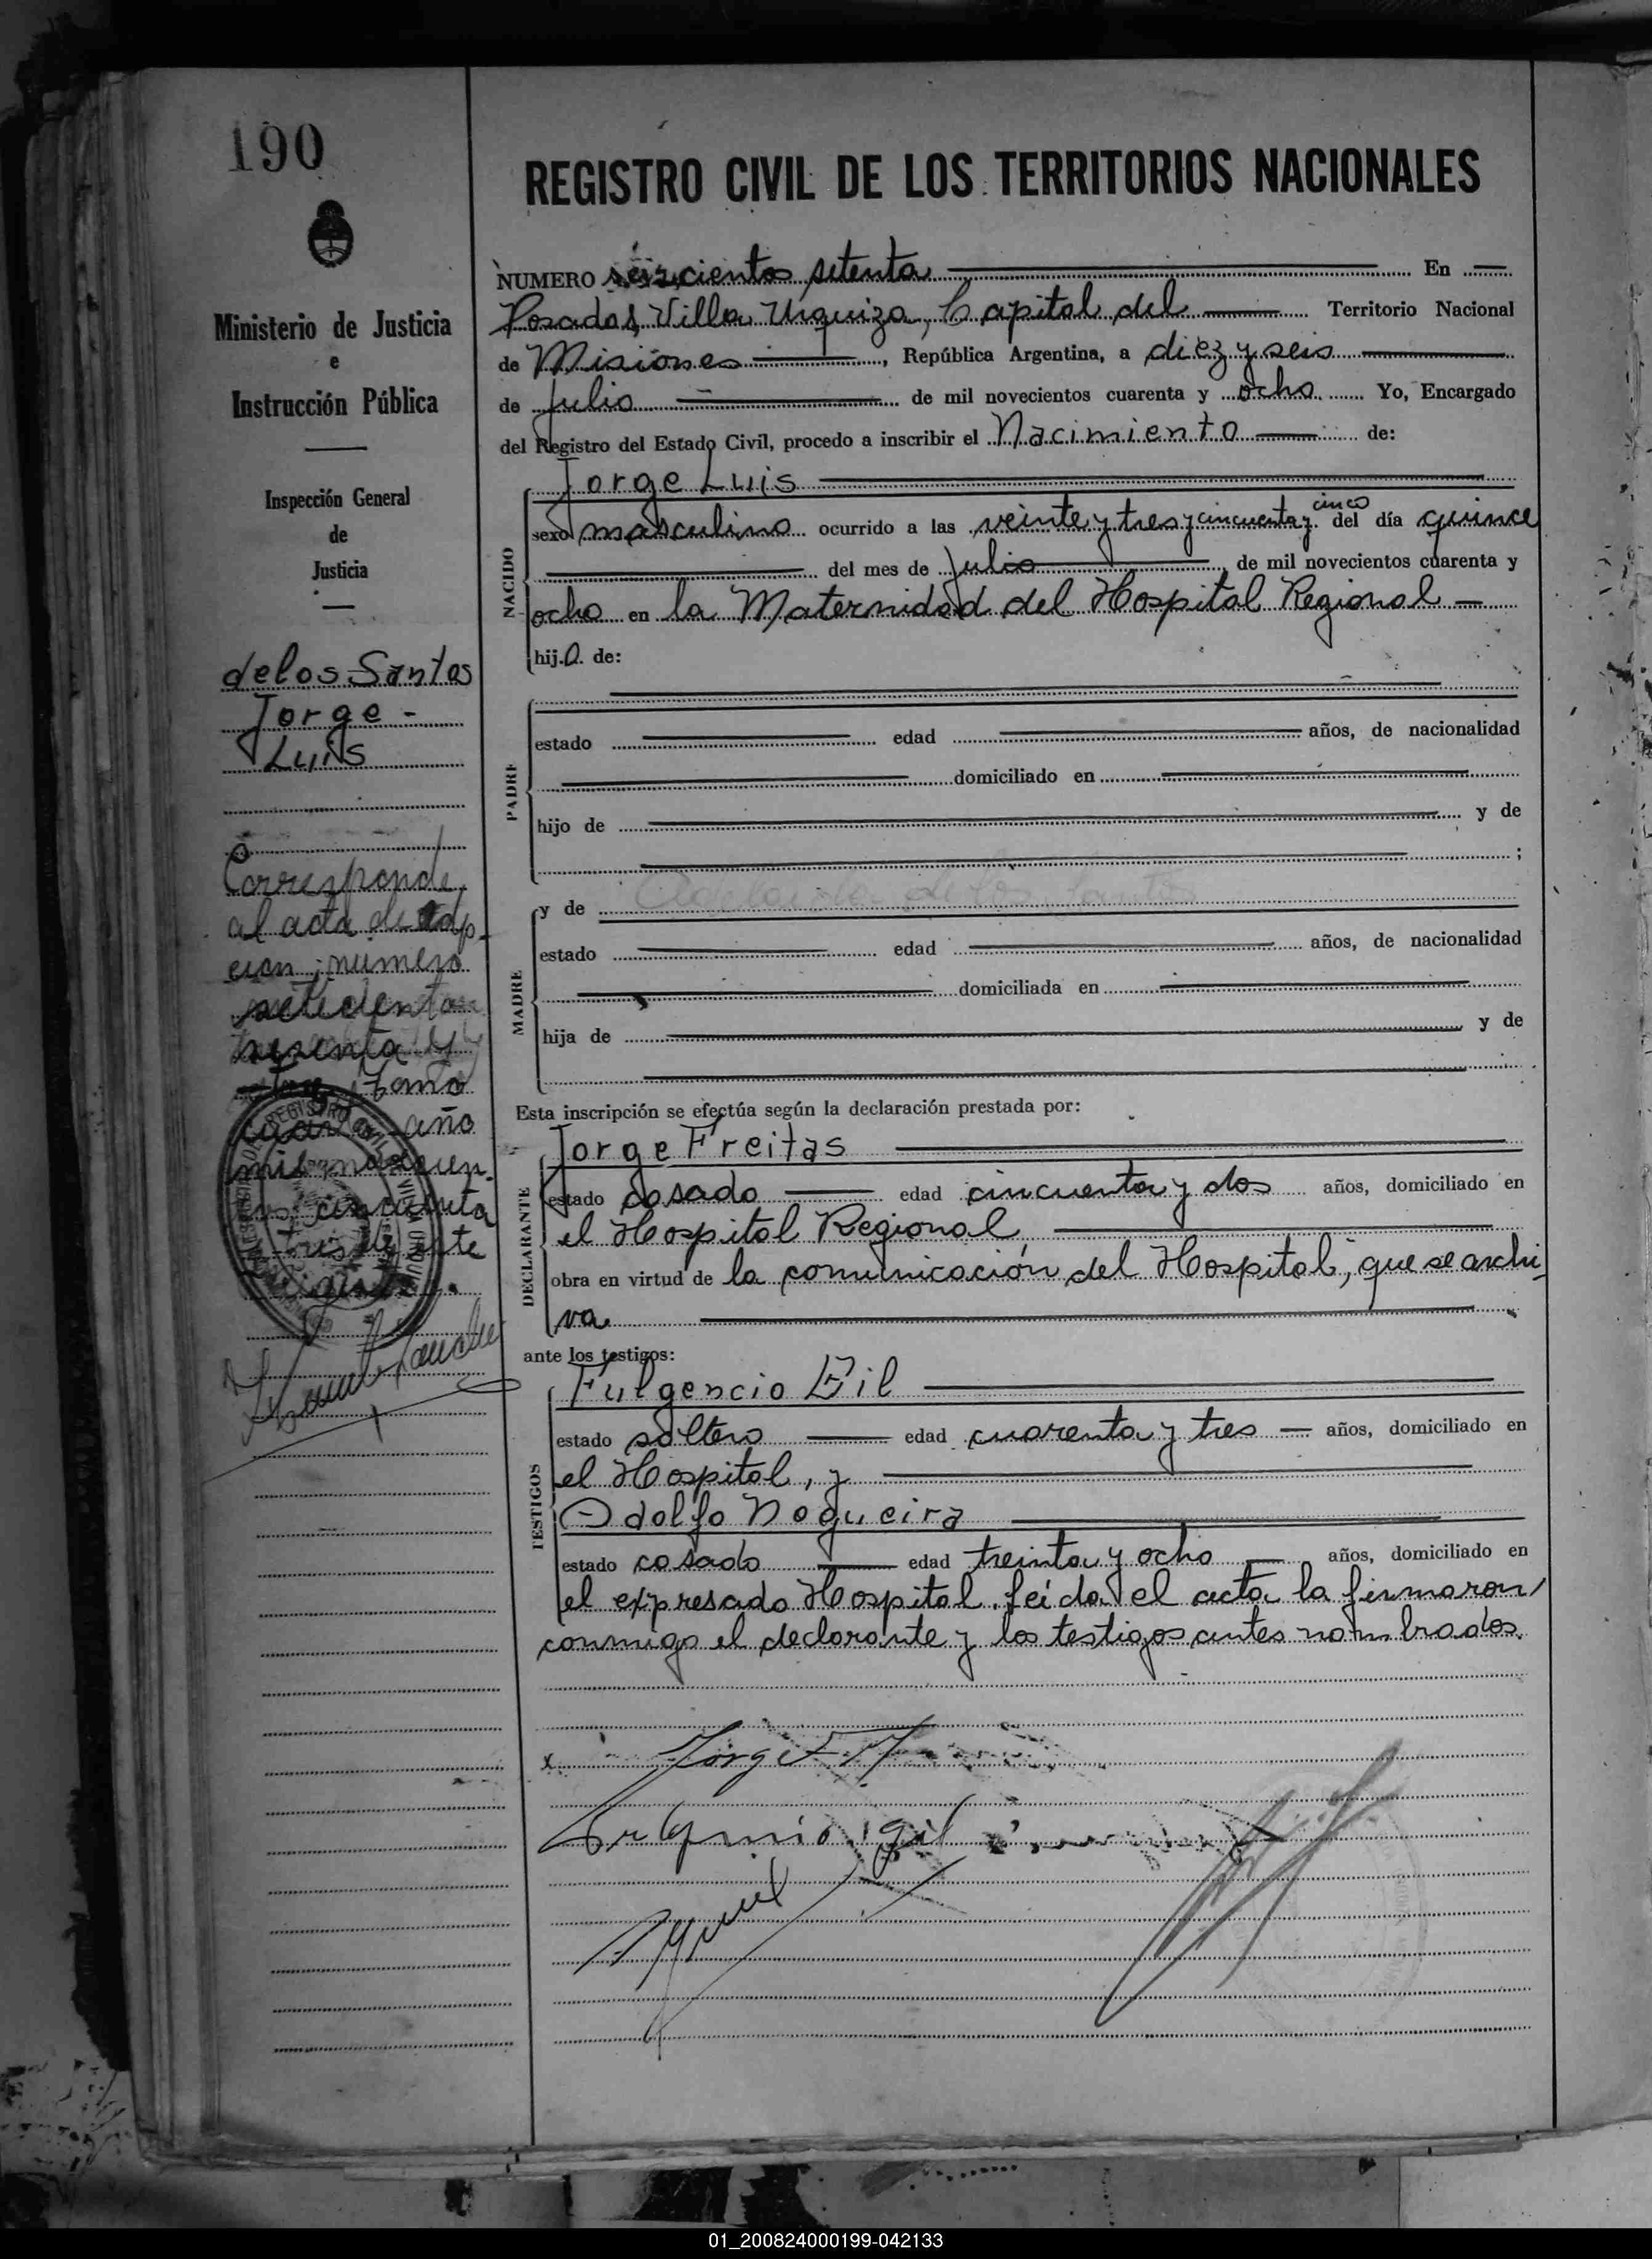 190
REGISTRO CIVIL DE LOS TERRITORIOS NACIONALES
Ministerio de Justicia
e
Instrucción Pública
Inspección General
de
Justicia
de los Santos
Jorge -
Luis
Corresponde
al acta de adop-
cion; numero
setecientos
sesenta y
tomo
año
mil novecien-
tos cincuenta
y tres de este
NUMERO seiscientos setenta En
Posadas, Villa Urquiza, Capital del Territorio Nacional
de Misiones, República Argentina, a diez y seis
de Julio de mil novecientos cuarenta y ocho Yo, Encargado
del Registro del Estado Civil, procedo a inscribir el Nacimiento de:
NACIDO
Jorge Luis
sexo masculino ocurrido a las veinte y tres y cincuenta y cinco del día quince
del mes de Julio, de mil novecientos cuarenta y
ocho en la Maternidad del Hospital Regional
hijo de:
PADRE
estado edad años, de nacionalidad
domiciliado en
hijo de y de
;
MADRE
y de de los Santos
estado edad años, de nacionalidad
domiciliada en
hija de y de
Esta inscripción se efectúa según la declaración prestada por:
DECLARANTE
Jorge Freitas
estado casado edad cincuenta y dos años, domiciliado en
el Hospital Regional,
obra en virtud de la comunicación del Hospital, que se archi-
va
ante los testigos:
TESTIGOS
Fulgencio Gil
estado soltero edad cuarenta y tres años, domiciliado en
el Hospital, y
Adolfo Nogueira
estado casado edad treinta y ocho años, domiciliado en
el expresado Hospital. Leída el acta la firmaron
conmigo el declarante y los testigos antes nombrados.
x Jorge
gil
01_200824000199-042133